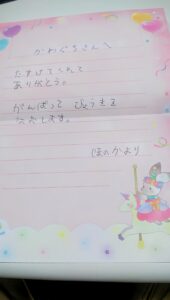 かわぐちさんへ
たすけてくれて
ありがとう。
がんばって びょうきを
なおします。
ほのかより